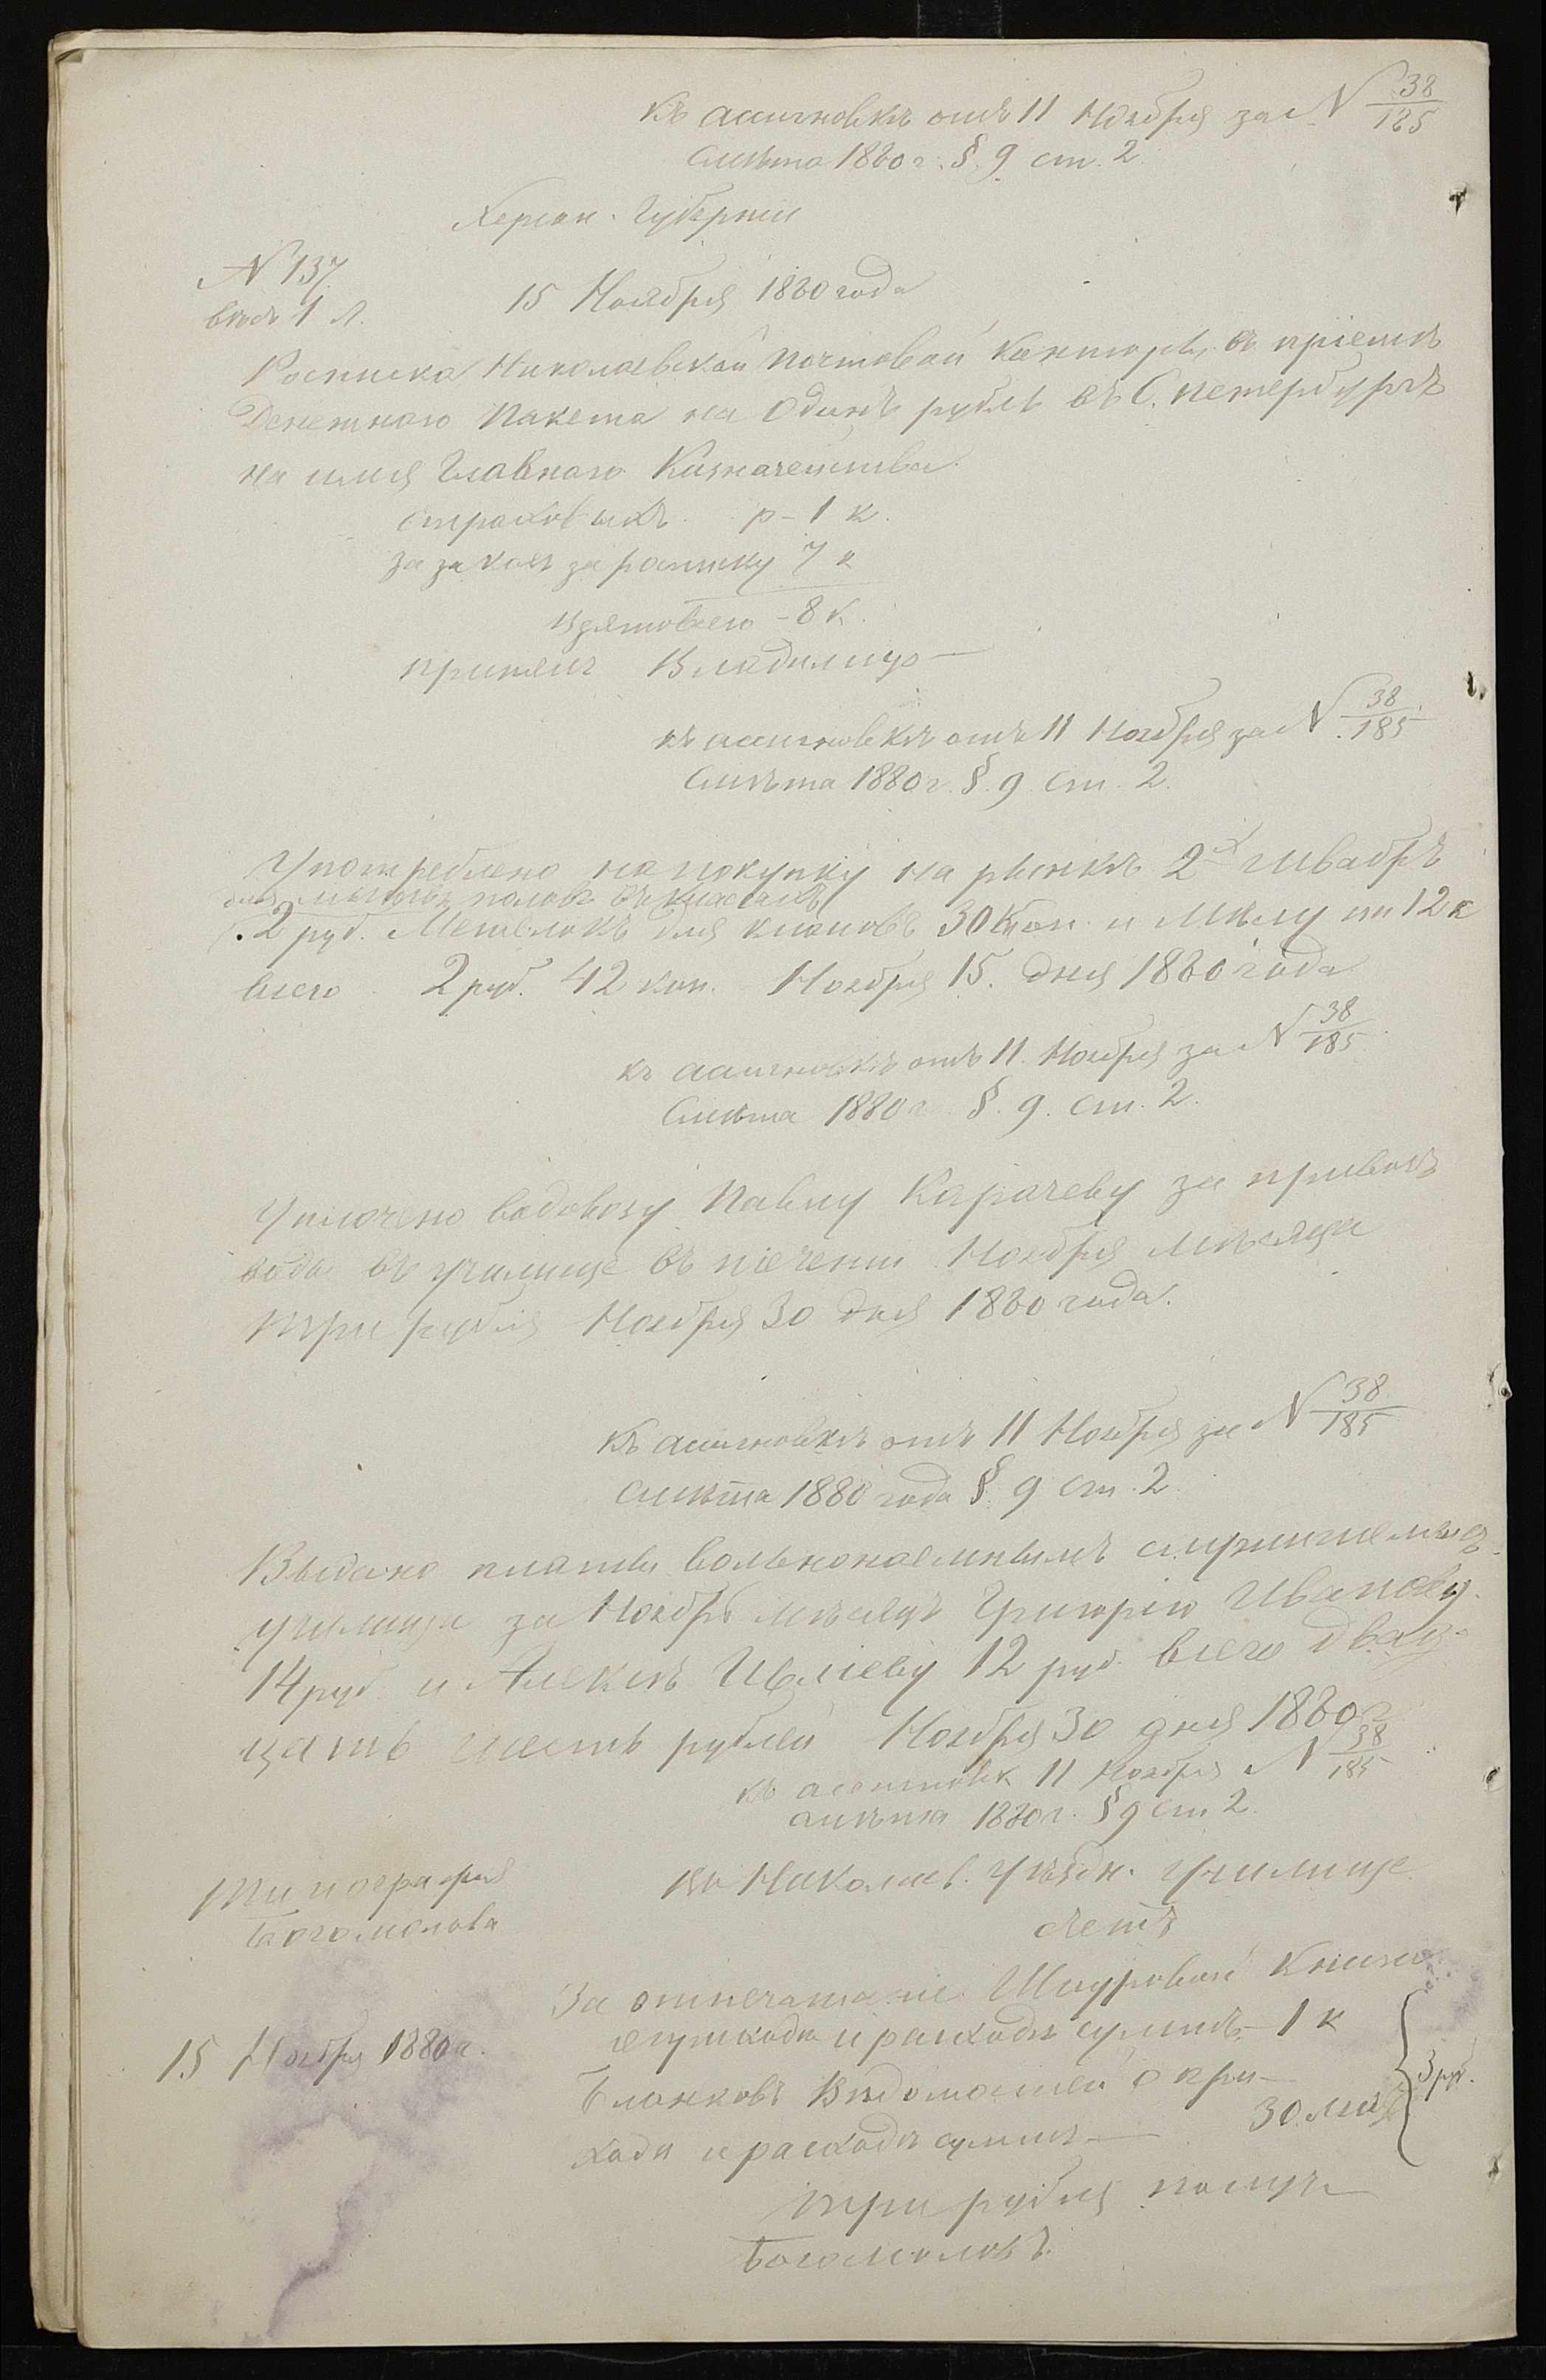 Къ ассигновкѣ отъ 11 Ноября за № 38/185
Смѣта 1880 г. § 9 ст. 2.
Херсон. Губерніи
№ 137
вѣсъ 1 л.
15 Ноября 1880 года
Росписка Николаевской почтовой Конторы, въ пріемѣ
Денежнаго пакета на Одинъ рубль въ С. петербургъ
на имя Главнаго Казначейства.
страховыхъ р – 1 к.
за росписку 7 к
взято всего – 8 к.
принялъ Владимиръ
къ ассигновкѣ отъ 11 Ноября за № 38/185
Смѣта 1880 г. § 9 ст. 2.
Употреблено на покупку на рынкѣ 2х швабръ
для мытья половъ въ классахъ
2 руб. Метелокъ для 30 Коп. и Мѣлу на 12 к
всего 2 руб. 42 коп. Ноября 15. дня 1880 года
къ ассигновкѣ отъ 11. Ноября за № 38/185
Смѣта 1880 г. § 9. ст. 2.
Уплочено водовозу Павлу Карачеву за привозъ
воды въ училище въ теченіи Ноября Мѣсяца
три рубля Ноября 30 дня 1880 года.
Къ ассигновкѣ отъ 11 Ноября за № 38/185
смѣта 1880 года § 9 ст. 2.
Выдано платы вольнонаемнымъ служителямъ
училища за Ноябрь мѣсяцъ Григорію Иванову
14 руб. и Алексѣю 12 руб. всего двад-
цать шесть рублей Ноября 30 дня 1880 г.
къ ассигновк 11 Ноября № 38/185
смѣта 1880 г. § 9 ст 2.
Типографія
Богомолова
Въ Николаев. Уѣздн. Училище
счетъ
15 Ноября 1880 г.
За отпечатаніе Шнуровой Книги
прихода и расхода суммъ – 1 к
Бланковъ Вѣдомостей о при-
хода и расходѣ суммъ — 30 лис
3 руб.
три рубля получ
Богомоловъ